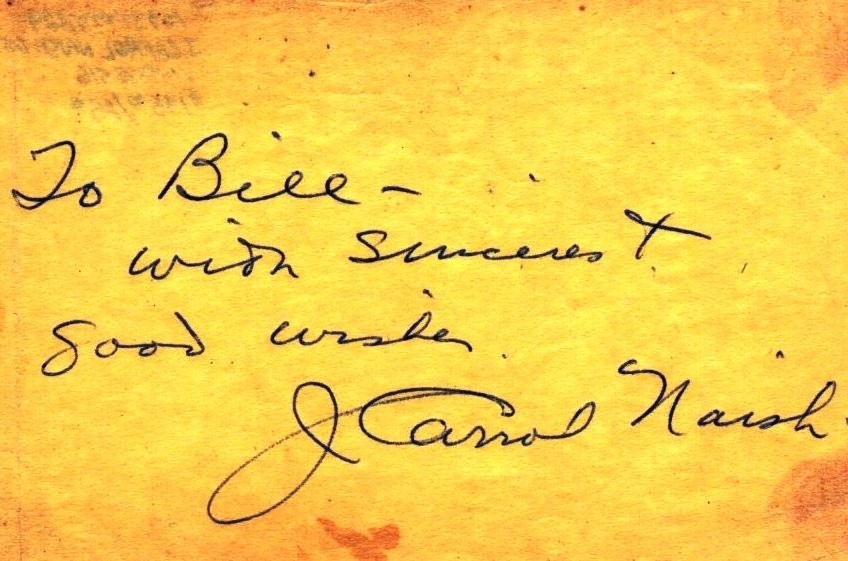 To Bill –
with sincerest
good wishes.
J Carrol Naish.